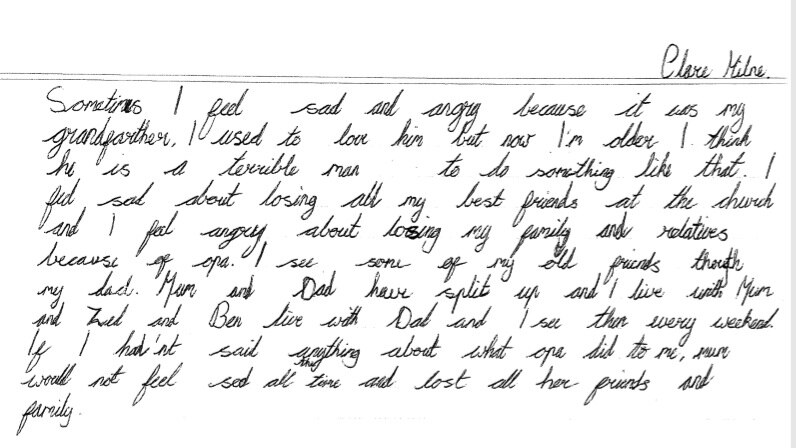 Clare Milne.
Sometimes I feel sad and angry because it was my
grandfarther, I used to love him but now I'm older I think
he is a terrible man to do something like that. I
feel sad about losing all my best friends at the church
and I feel angry about losing my family and relatives
because of opa. I see some of my old friends though
my dad. Mum and Dad have split up and I live with Mum
and Zed and Ben live with Dad and I see them every weekend.
If I had'nt said anything about what opa did to me, mum
would not feel sad all the time and lost all her friends and
family.